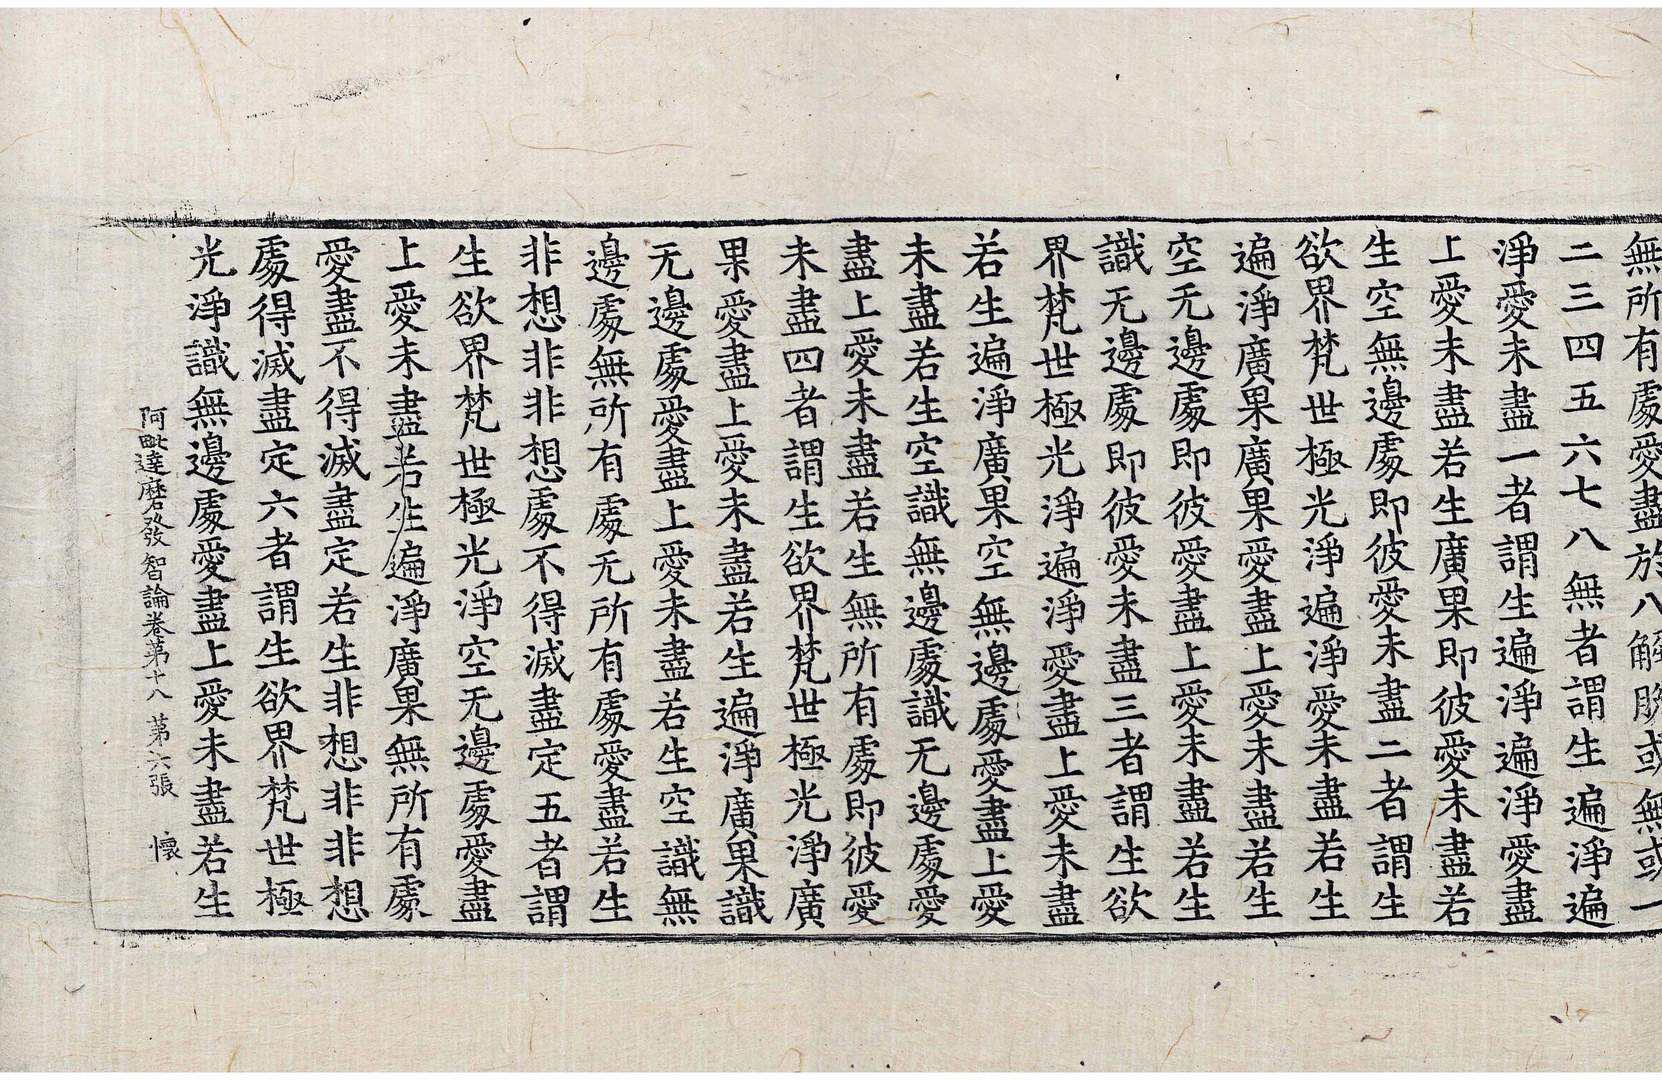 無所有處愛盡於八解脫或無或一
二三四五六七八無者謂生遍淨遍
淨愛未盡一者謂生遍淨遍淨愛盡
上愛未盡若生廣果即彼愛未盡若
生空無邊處即彼愛未盡二者謂生
欲界梵世極光淨遍淨愛未盡若生
遍淨廣果廣果愛盡上愛未盡若生
空无邊處即彼愛盡上愛未盡若生
識无邊處即彼愛未盡三者謂生欲
界梵世極光淨遍淨愛盡上愛未盡
若生遍淨廣果空無邊處愛盡上愛
未盡若生空識無邊處識无邊處愛
盡上愛未盡若生無所有處即彼愛
未盡四者謂生欲界梵世極光淨廣
果愛盡上愛未盡若生遍淨廣果識
无邊處愛盡上愛未盡若生空識無
邊處無所有處无所有處愛盡若生
非想非非想處不得滅盡定五者謂
生欲界梵世極光淨空无邊處愛盡
上愛未盡若生遍淨廣果無所有處
愛盡不得滅盡定若生非想非非想
處得滅盡定六者謂生欲界梵世極
光淨識無邊處愛盡上愛未盡若生
阿毗達磨發智論卷第十八 第六張 懷